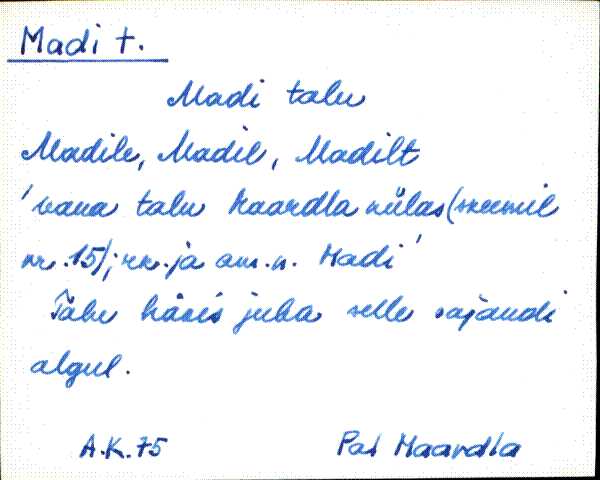 Madi t.
Madi talu
Madile, Madil, Madilt
'vana talu Haardla külas (skeemil
nr. 15); rn. ja am. n. Madi'
Talu hävis juba selle sajandi
algul.
A.K. 75